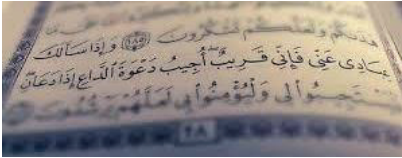 هَدَىٰكُمْ وَلَعَلَّكُمْ تَشْكُرُونَ ١٨٥ وَإِذَا سَأَلَكَ
عِبَادِى عَنِّى فَإِنِّى قَرِيبٌ أُجِيبُ دَعْوَةَ ٱلدَّاعِ إِذَا دَعَانِ
لِى وَلْيُؤْمِنُوا۟ بِى لَعَلَّهُمْ يَرْشُدُونَ
٢٨